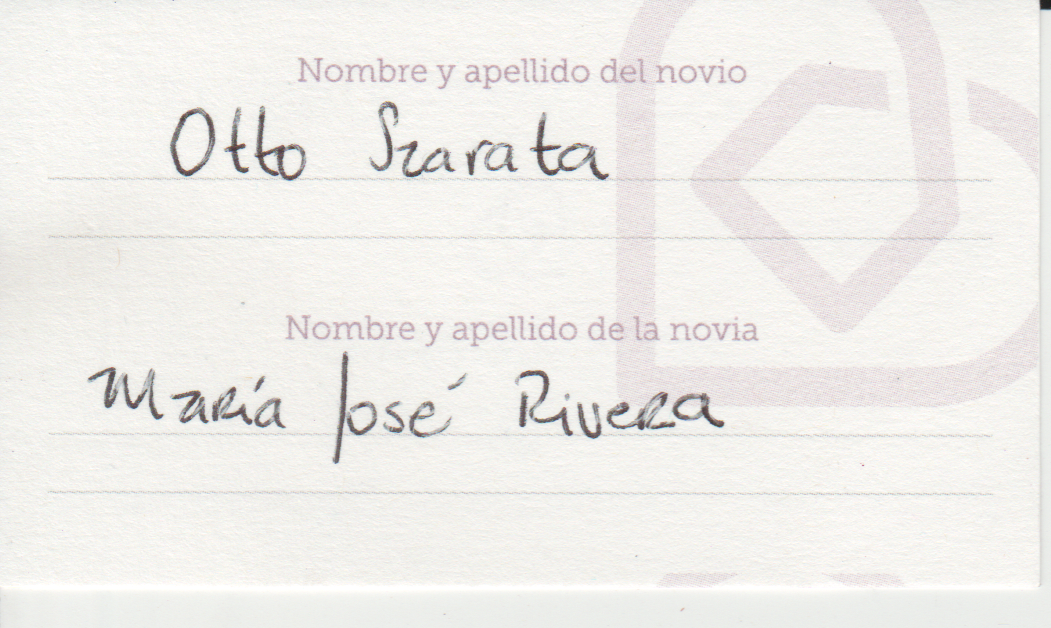 Nombre y apellido del novio
Otto Szarata
Nombre y apellido de la novia
María José Rivera